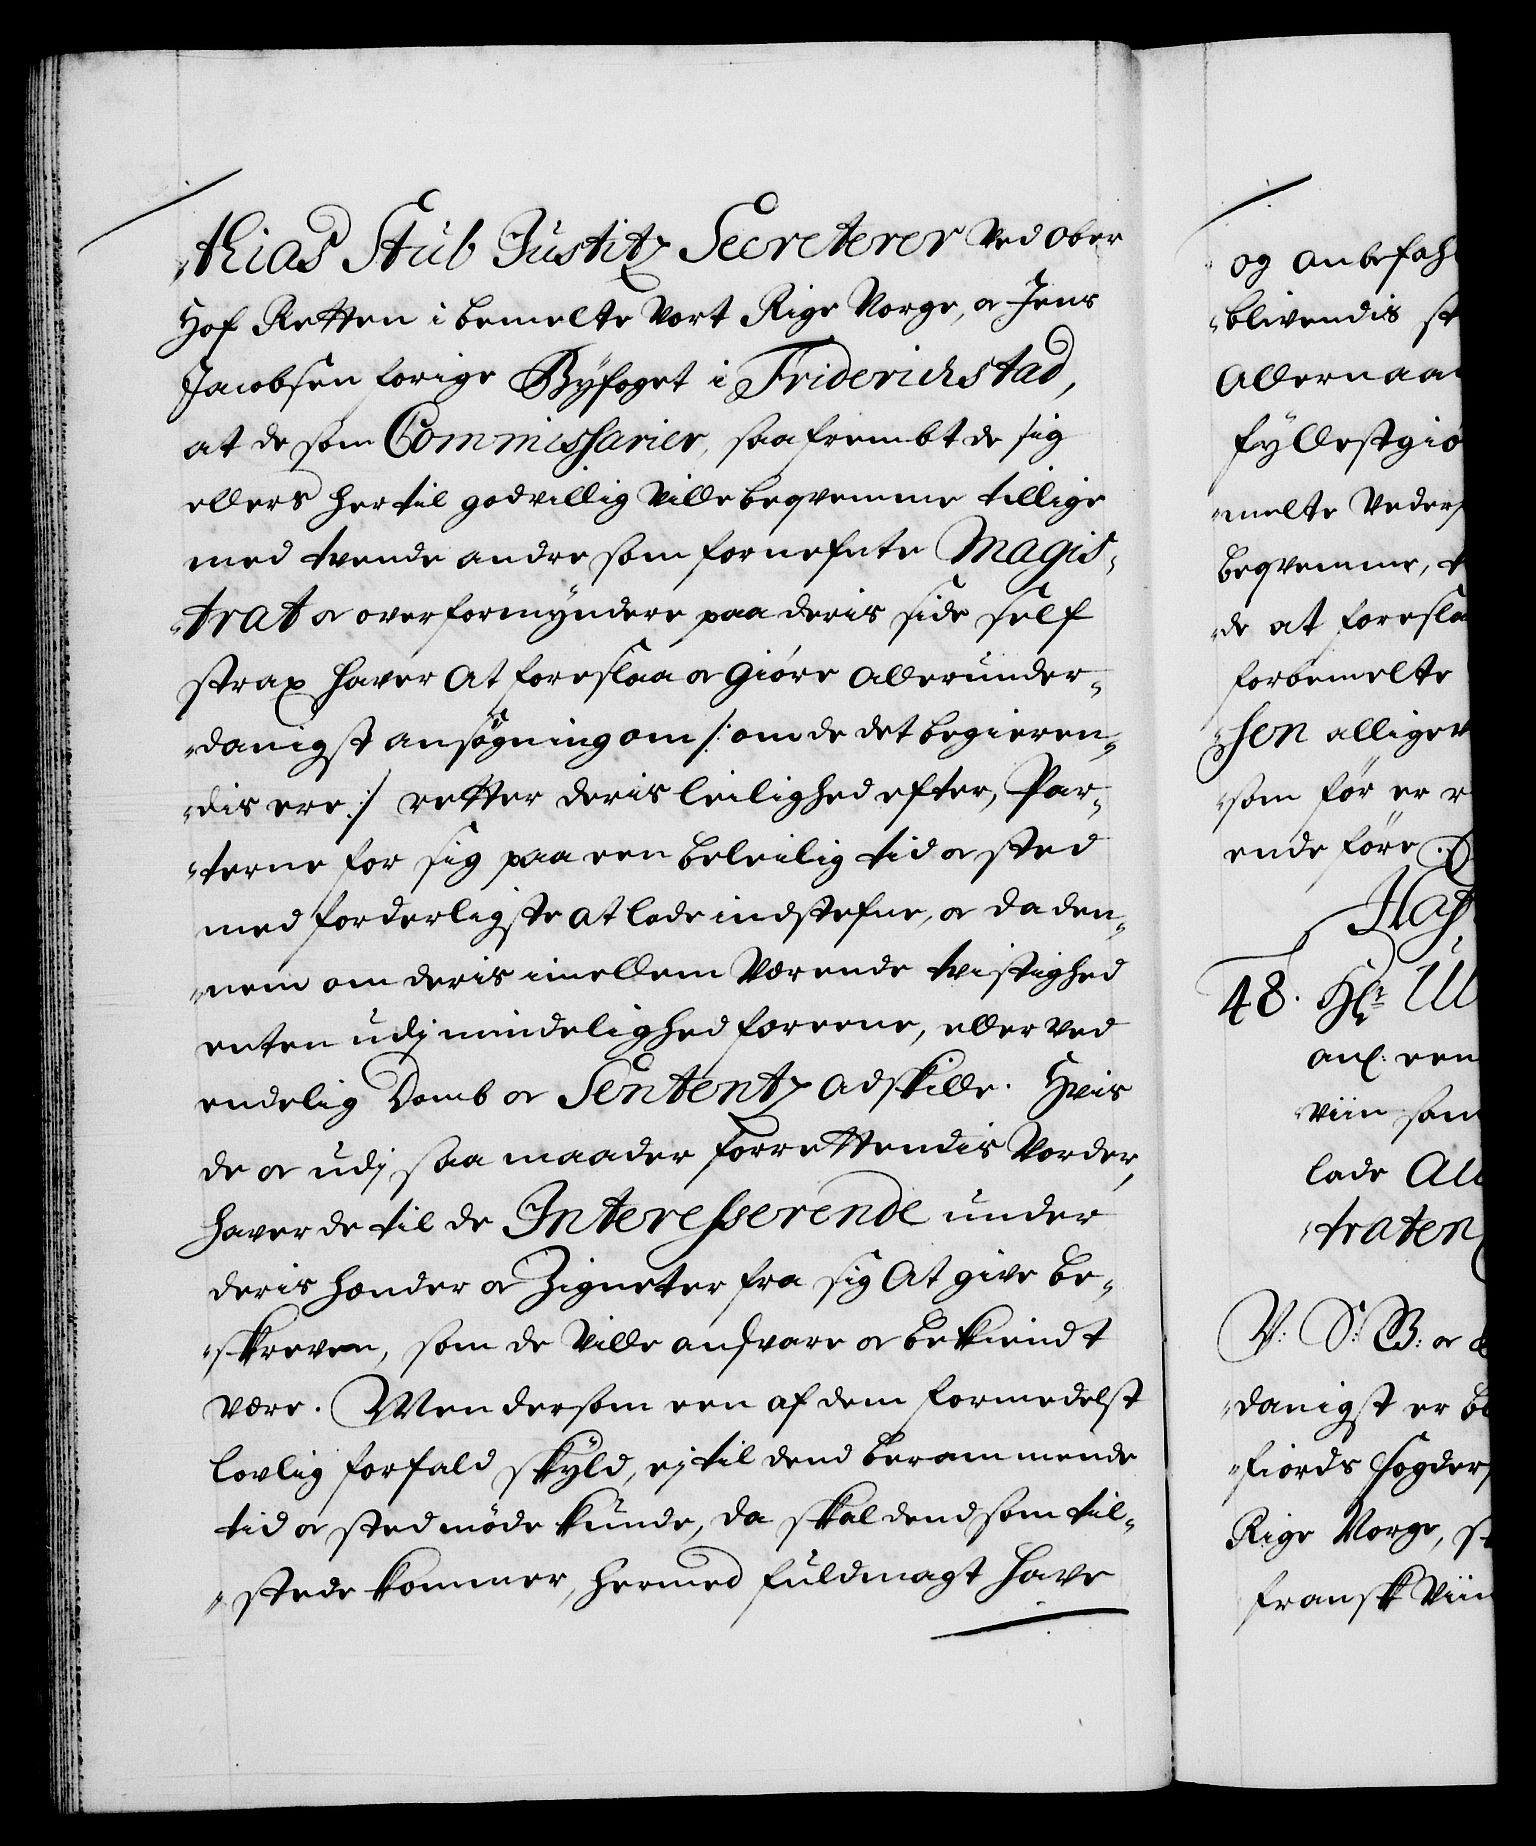 thias Stub Justitz Secreterer ved Ober
Hof Retten i bemelte Vort Rige Norge, og Jens
Jacobsen forige Byfoget i Friderichstad,
at de som Commissarier, saafrembt de sig
ellers hertil godvillig ville beqvemme tillige
med tvende andre som fornefnte Magis-
trat og overformyndere paa deris side self
strax haver at foreslaa og giøre allerunder-
danigst ansøgning om /: om de det begieren-
dis ere :/ retter deris leilighed efter, Par-
terne for sig paa een beleilig tid og sted
med forderligste at lade indstefne, og da den-
nem om deris imellem værende tvistighed
enten udj mindelighed foreene, eller ved
endelig Domb og Sententz adskille. Hvis
de og udj saa maader forrettendis vorder,
haver de til de Interesserende under
deris hænder og Zigneter fra sig at give be-
skreven, som de ville ansvare og bekiendt
være. Men dersom een af dem formedelst
lovlig forfald skyld, ej til dend berammende
tid og sted møde kunde, da skal dend som til-
stede kommer, hermed fuldmagt have
og anbefah
blivendis st
Allernaa
fyllestgiø
melte Veders
beqvemme, t
de at foresla
forbemelte
sen alligev
som før er
ende føre.
48. Hr Ul
anl. een
viin som
lade All
traten
V: S: B: og
danigst er be
fiords Fogder
Rige Norge, st
fransk viin